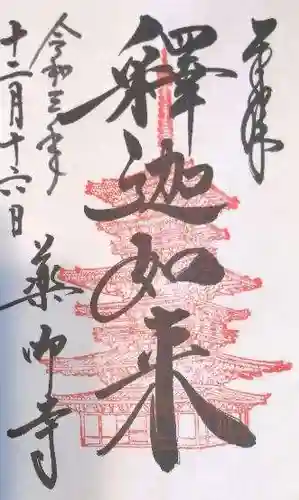 奉拝
釋迦如来
令和三年
十二月十六日
薬師寺